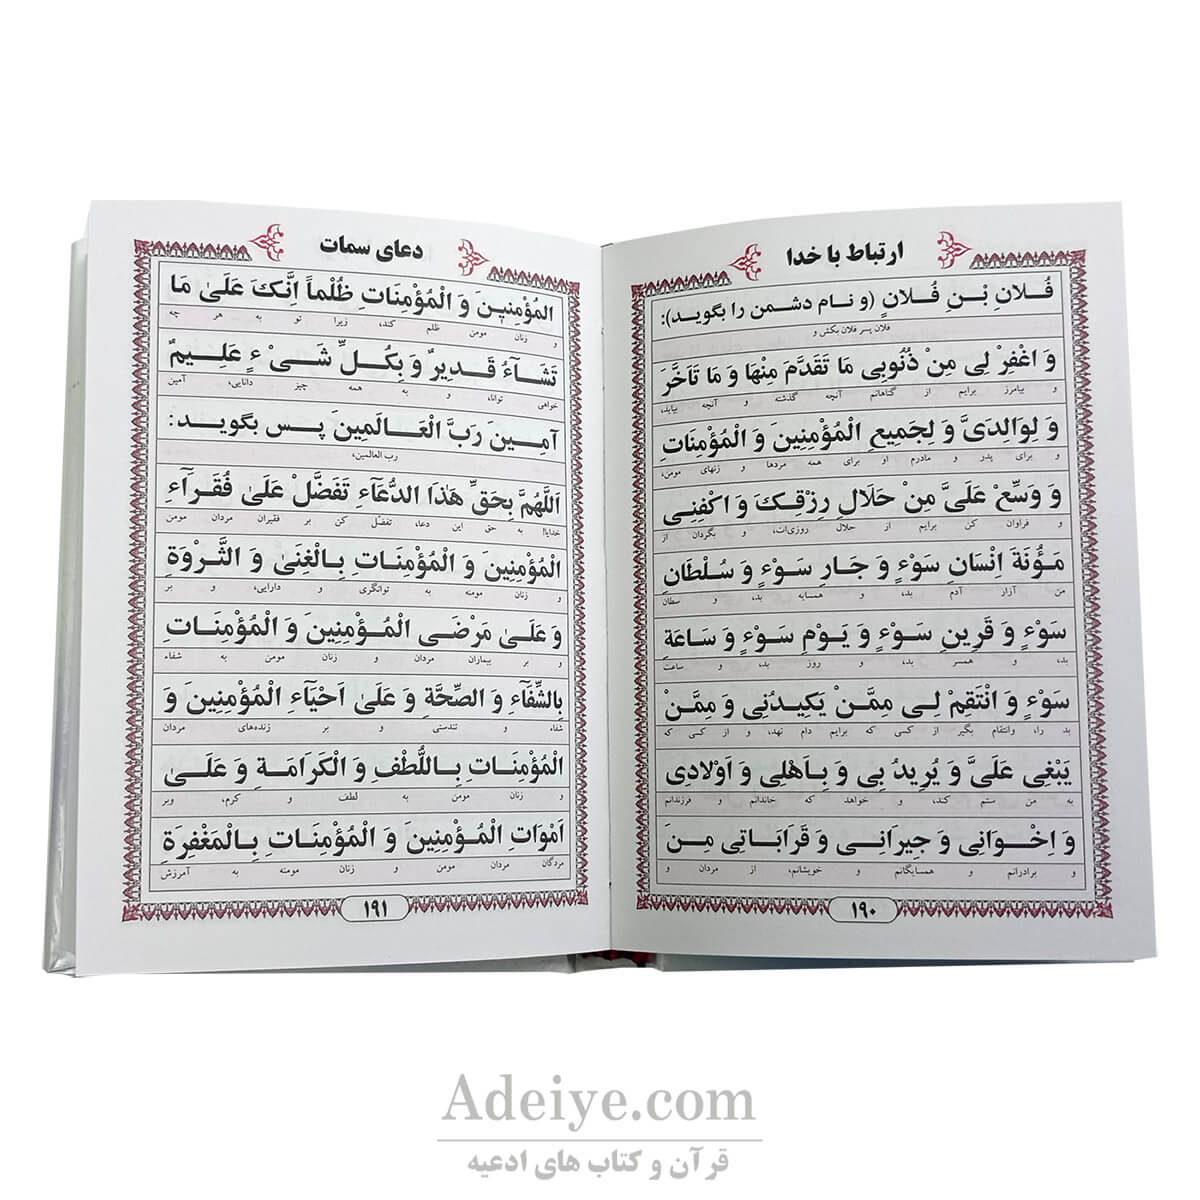 ارتباط با خدا
فُلانِ بْنِ فُلانٍ (و نام دشمن را بگوید):
فلان پسر فلان بکش و
وَ اغْفِرْ لِی مِنْ ذُنُوبِی مَا تَقَدَّمَ مِنْهَا وَ مَا تَاَخَّرَ
و بیامرز برایم از گناهانم آنچه گذشته و آنچه بیاید،
وَ لِوالِدَیَّ وَ لِجَمیعِ الْمُؤْمِنِینَ وَ الْمُؤْمِنَاتِ
و برای پدر و مادرم او برای همه مردها و زنهای مومن،
وَ وَسِّعْ عَلَیَّ مِنْ حَلَالِ رِزْقِکَ وَ اکْفِنِی
و فراوان کن برایم از حلال روزی‌ات، و بگردان از
مَؤُنَةَ اِنْسَانِ سَوْءٍ وَ جَارِ سَوْءٍ وَ سُلْطَانِ
من آزار آدم بد، و همسایه بد، و سطان
سَوْءٍ وَ قَرِینِ سَوْءٍ وَ یَوْمِ سَوْءٍ وَ سَاعَةِ
بد، و همسر بد، و روز بد، و ساعت
سَوْءٍ وَ انْتَقِمْ لِی مِمَّنْ یَکِیدُنِی وَ مِمَّنْ
بد را، وانتقام بگیر از کسی که برایم دام نهد، و از کسی که
یَبْغِی عَلَیَّ وَ یُرِیدُ بِی وَ بِاَهْلِی وَ اَوْلادِی
به من ستم کند، و خواهد که خاندانم و فرزندانم
وَ اِخْوَانِی وَ جِیرَانِی وَ قَرَابَاتِی مِنَ
و برادرانم و همسایگانم و خویشانم، از مردان و
۱۹۰
دعای سمات
الْمُؤْمِنِینَ وَ الْمُؤْمِنَاتِ ظُلْماً اِنَّکَ عَلَیٰ مَا
و زنان مومن ظلم کند، زیرا تو به هر چه
تَشَآءُ قَدِیرٌ وَ بِکُلِّ شَیْ ءٍ عَلِیمٌ
خواهی توانا، و به همه چیز دانایی، آمین
آمِینَ رَبَّ الْعَالَمِینَ پس بگوید:
رب العالمین،
اَللَّهُمَّ بِحَقِّ هَذَا الدُّعَآءِ تَفَضَّلْ عَلَیٰ فُقَرَآءِ
خدایا! به حق این دعا، تفضّل کن بر فقیران مردان مومن
الْمُؤْمِنِینَ وَ الْمُؤْمِنَاتِ بِالْغِنَیٰ وَ الثَّرْوَةِ
و زنان مومنه به توانگری و دارایی، و بر
وَ عَلَیٰ مَرْضَی الْمُؤْمِنِینَ وَ الْمُؤْمِنَاتِ
و بر بیماران مردان و زنان مومن به شفاء
بِالشِّفَآءِ وَ الصِّحَّةِ وَ عَلَیٰ اَحْیَآءِ الْمُؤْمِنِینَ وَ
شفاء و تندستی و بر زنده‌های مردان
الْمُؤْمِنَاتِ بِاللُّطْفِ وَ الْکَرَامَةِ وَ عَلَیٰ
و زنان مومن به لطف و کرم، وبر
اَمْوَاتِ الْمُؤْمِنِینَ وَ الْمُؤْمِنَاتِ بِالْمَغْفِرَةِ
مردگان مردان مومن و زنان مومنه به آمرزش
۱۹۱
Adeiye.com
قرآن و کتاب های ادعیه